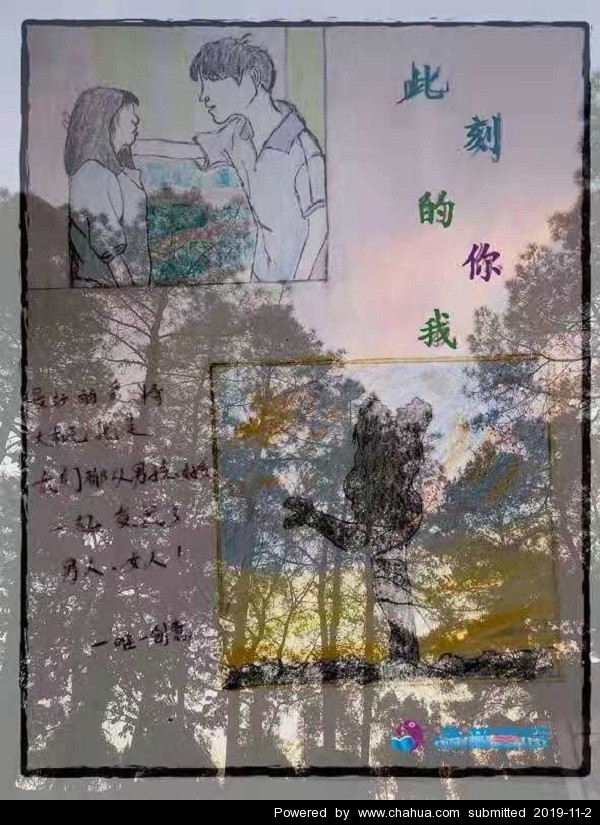 此刻的你我
最好的爱情
大概就是
我们都从男孩、女孩
一起变成了
男人、女人！
Powered by www.chahua.com submitted 2019-11-2